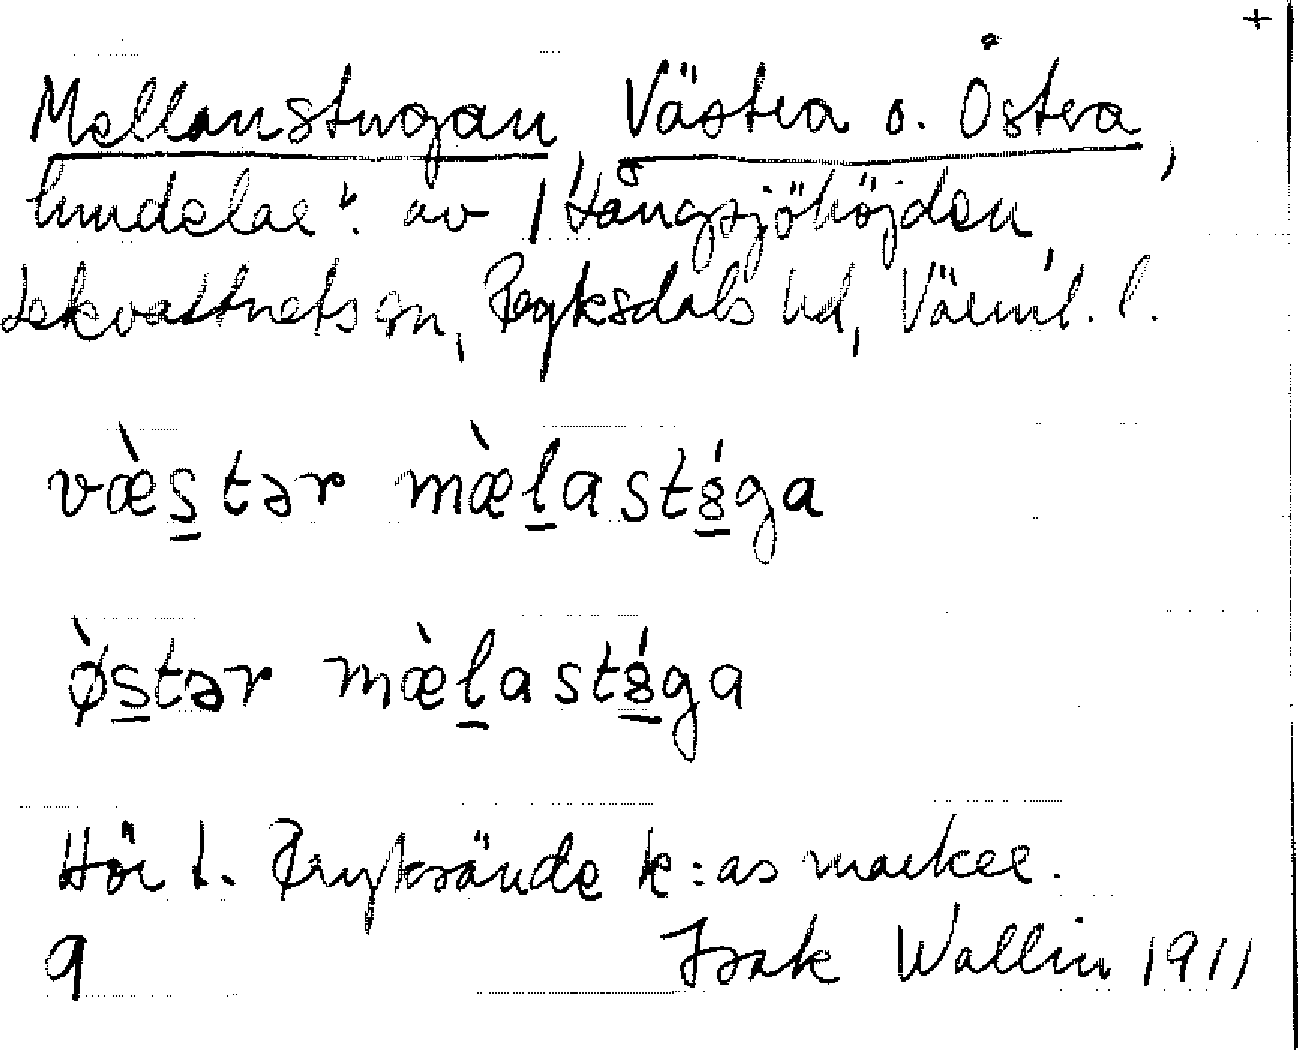 +
Mellanstugan, Västra o. Östra,
"lundelar". av Hångsjöhöjden,
Lekvattnets sn, Fryksdals hd, Värml. l.
væ̀stər mæ̀lastǵa
ø̀stər mæ̀lastǵa
Hör t. Fryksände k:as marker.
9 Isak Wallin 1911